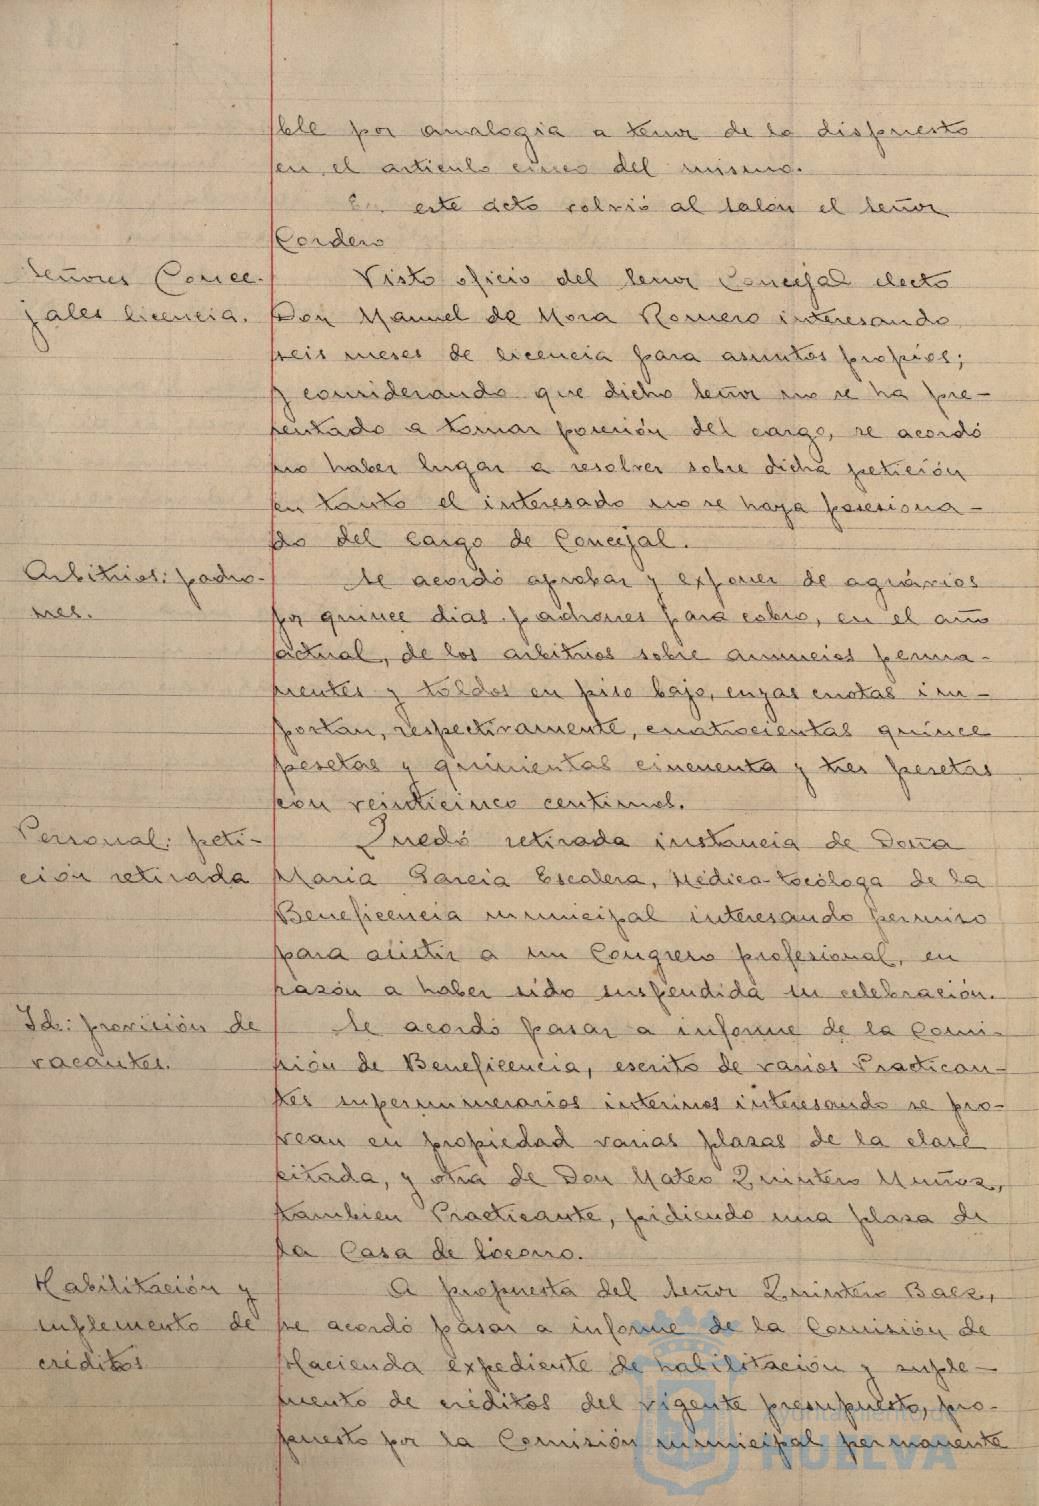 ble por analogia a tenor de lo dispuesto
en el articulo cinco del mismo.
En este acto volvió al salón el señor
Cordero
Señores Conce-
jales licencia.
Visto oficio del Señor Concejal electo
Don Manuel de Mora Romero interesando
seis meses de licencia para asuntos propios;
y considerando que dicho Señor no se ha pre-
sentado a tomar posesión del cargo, se acordó
no haber lugar a resolver sobre dicha petición
en tanto el interesado no se haya posesiona-
do del cargo de Concejal.
Arbitrios: padro-
nes.
Se acordó aprobar y exponer de agrávios
por quince dias padrones para cobro, en el año
actual, de los arbitrios sobre anuncios perma-
nentes y toldos en piso bajo, cuyas cuotas im-
portan, respectivamente, cuatrocientas quince
pesetas y quinientas cincuenta y tres pesetas
con veinticinco centimos.
Personal: peti-
ción retirada
Quedó retirada instancia de Doña
Maria Garcia Escalera, Médica-tocóloga de la
Beneficencia municipal interesando permiso
para asistir a un Congreso profesional, en
razón a haber sido suspendida su celebración.
Id: provisión de
vacantes.
Se acordó pasar a informe de la Comi-
sión de Beneficencia, escrito de varios Practican-
tes supernumerarios interinos interesando se pro-
vean en propiedad varias plazas de la clase
citada, y otra de Don Mateo Quintero Muñoz,
tambien Practicante, pidiendo una plaza de
la Casa de Socorro.
Habilitación y
suplemento de
créditos
A propuesta del Señor Quintero Baez,
se acordó pasar a informe de la Comisión de
Hacienda expediente de habilitación y suple-
mento de créditos del vigente presupuesto, pro-
puesto por la Comisión municipal permanente
Ayuntamiento de
HUELVA